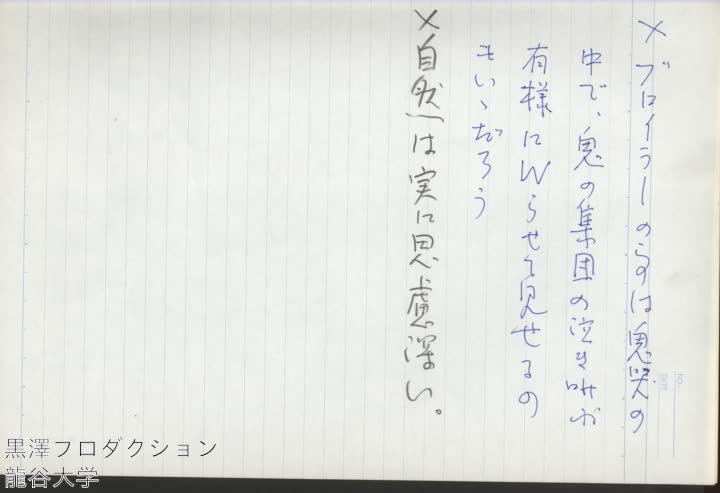 × ブロイラーの与は鬼哭の
中で、鬼の集団の泣き叫ぶ
有様にWらせて見せるの
もいゝだろう
× 自然は実に思慮深い。
黒澤フロダクション
龍谷大学